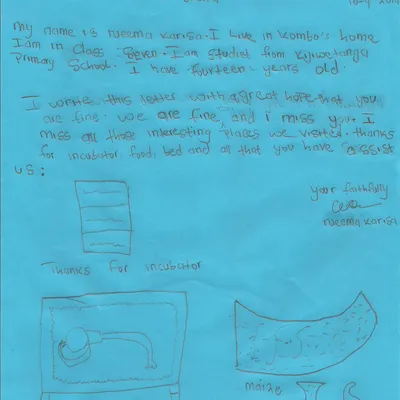 my name is Neema Karisa. I Live in Kombo's home
I am in class Seven. I am studist from Kijiwetanga
primary School. I have fourteen years old.
I wrote this letter with a great hope that you
are fine. we are fine, and i miss you. I
miss all those interesting places we visited. thanks
for incubator food, bed and all that you have assist
us:
your faithfully
Neema Karisa
Thanks for incubator
maize